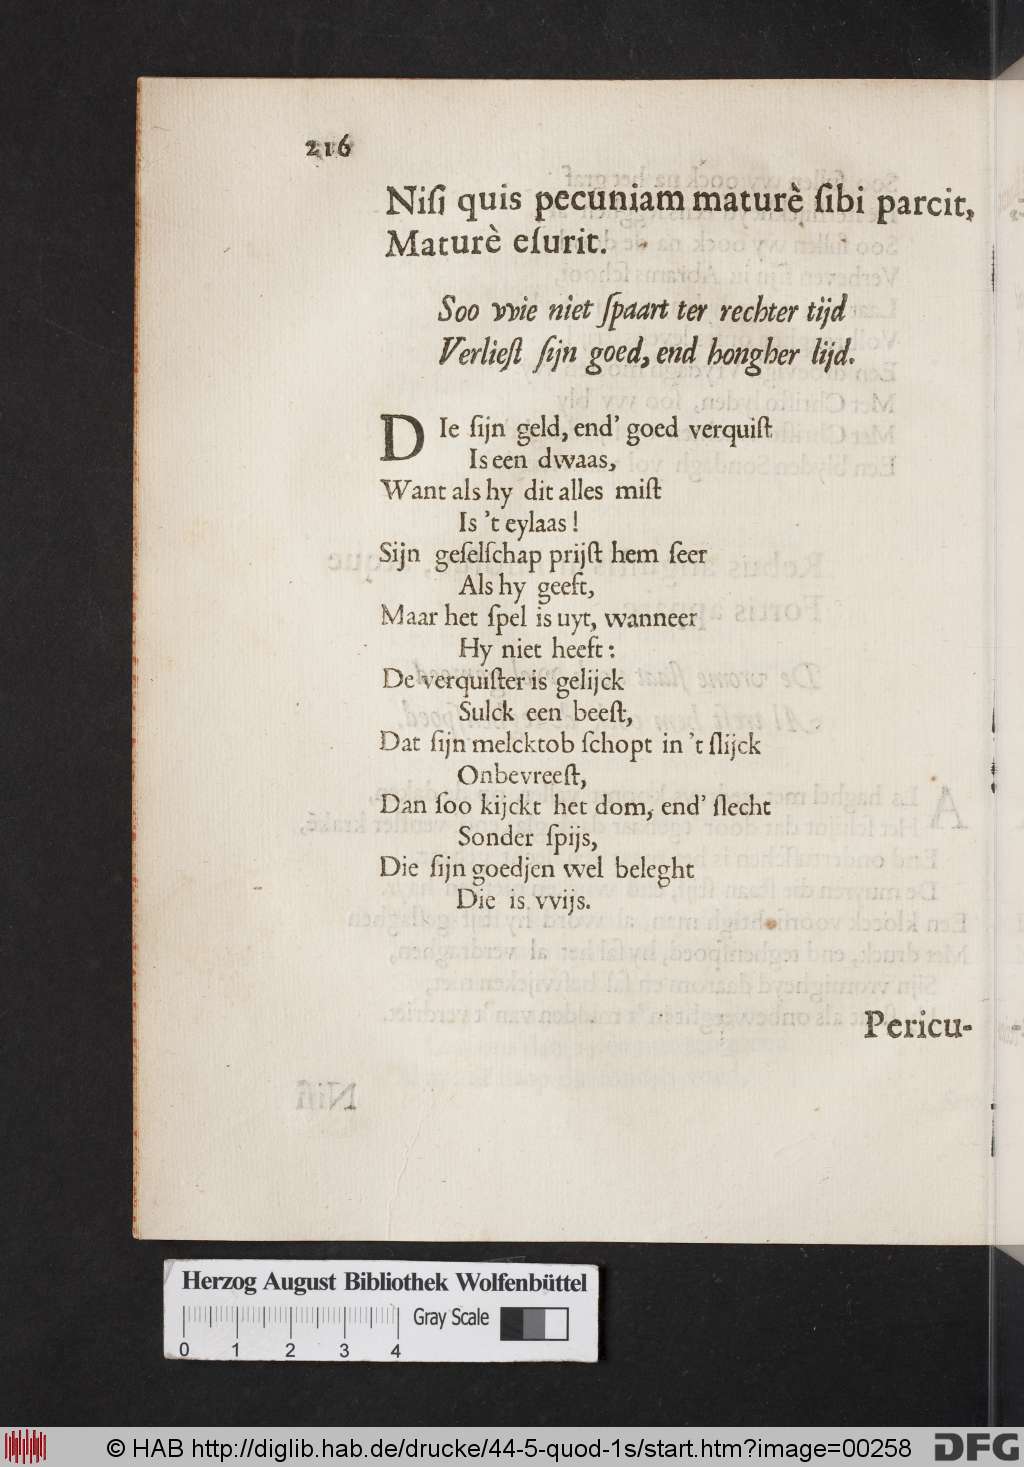 216
Niſi quis pecuniam maturè ſibi parcit,
Maturè eſurit.
Soo vvie niet ſpaart ter rechter tijd
Verlieſt ſijn goed, end hongher lijd.
DIe ſijn geld, end' goed verquiſt
Is een dwaas,
Want als hy dit alles miſt
Is 't eylaas!
Sijn geſelſchap prijſt hem ſeer
Als hy geeft,
Maar het ſpel is uyt, wanneer
Hy niet heeft:
De verquiſter is gelijck
Sulck een beeſt,
Dat ſijn melcktob ſchopt in 't ſlijck
Onbevreeſt,
Dan ſoo kijckt het dom, end' ſlecht
Sonder ſpijs,
Die ſijn goedjen wel beleght
Die is vvijs.
Pericu-
Herzog August Bibliothek Wolfenbüttel
Gray Scale
0 1 2 3 4
© HAB http://diglib.hab.de/drucke/44-5-quod-1s/start.htm?image=00258
DFG